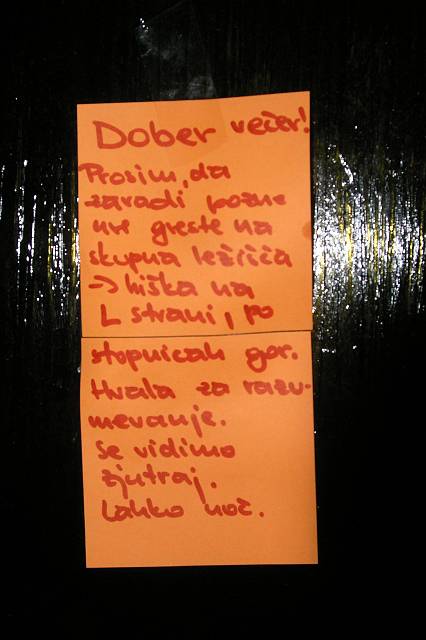 Dober večer!
Prosim, da
zaradi pozne
ure greste na
skupna ležišča
→ hiška na
L strani, po
stopnicah gor.
Hvala za razu-
mevanje.
Se vidimo
zjutraj.
Lahko noč.